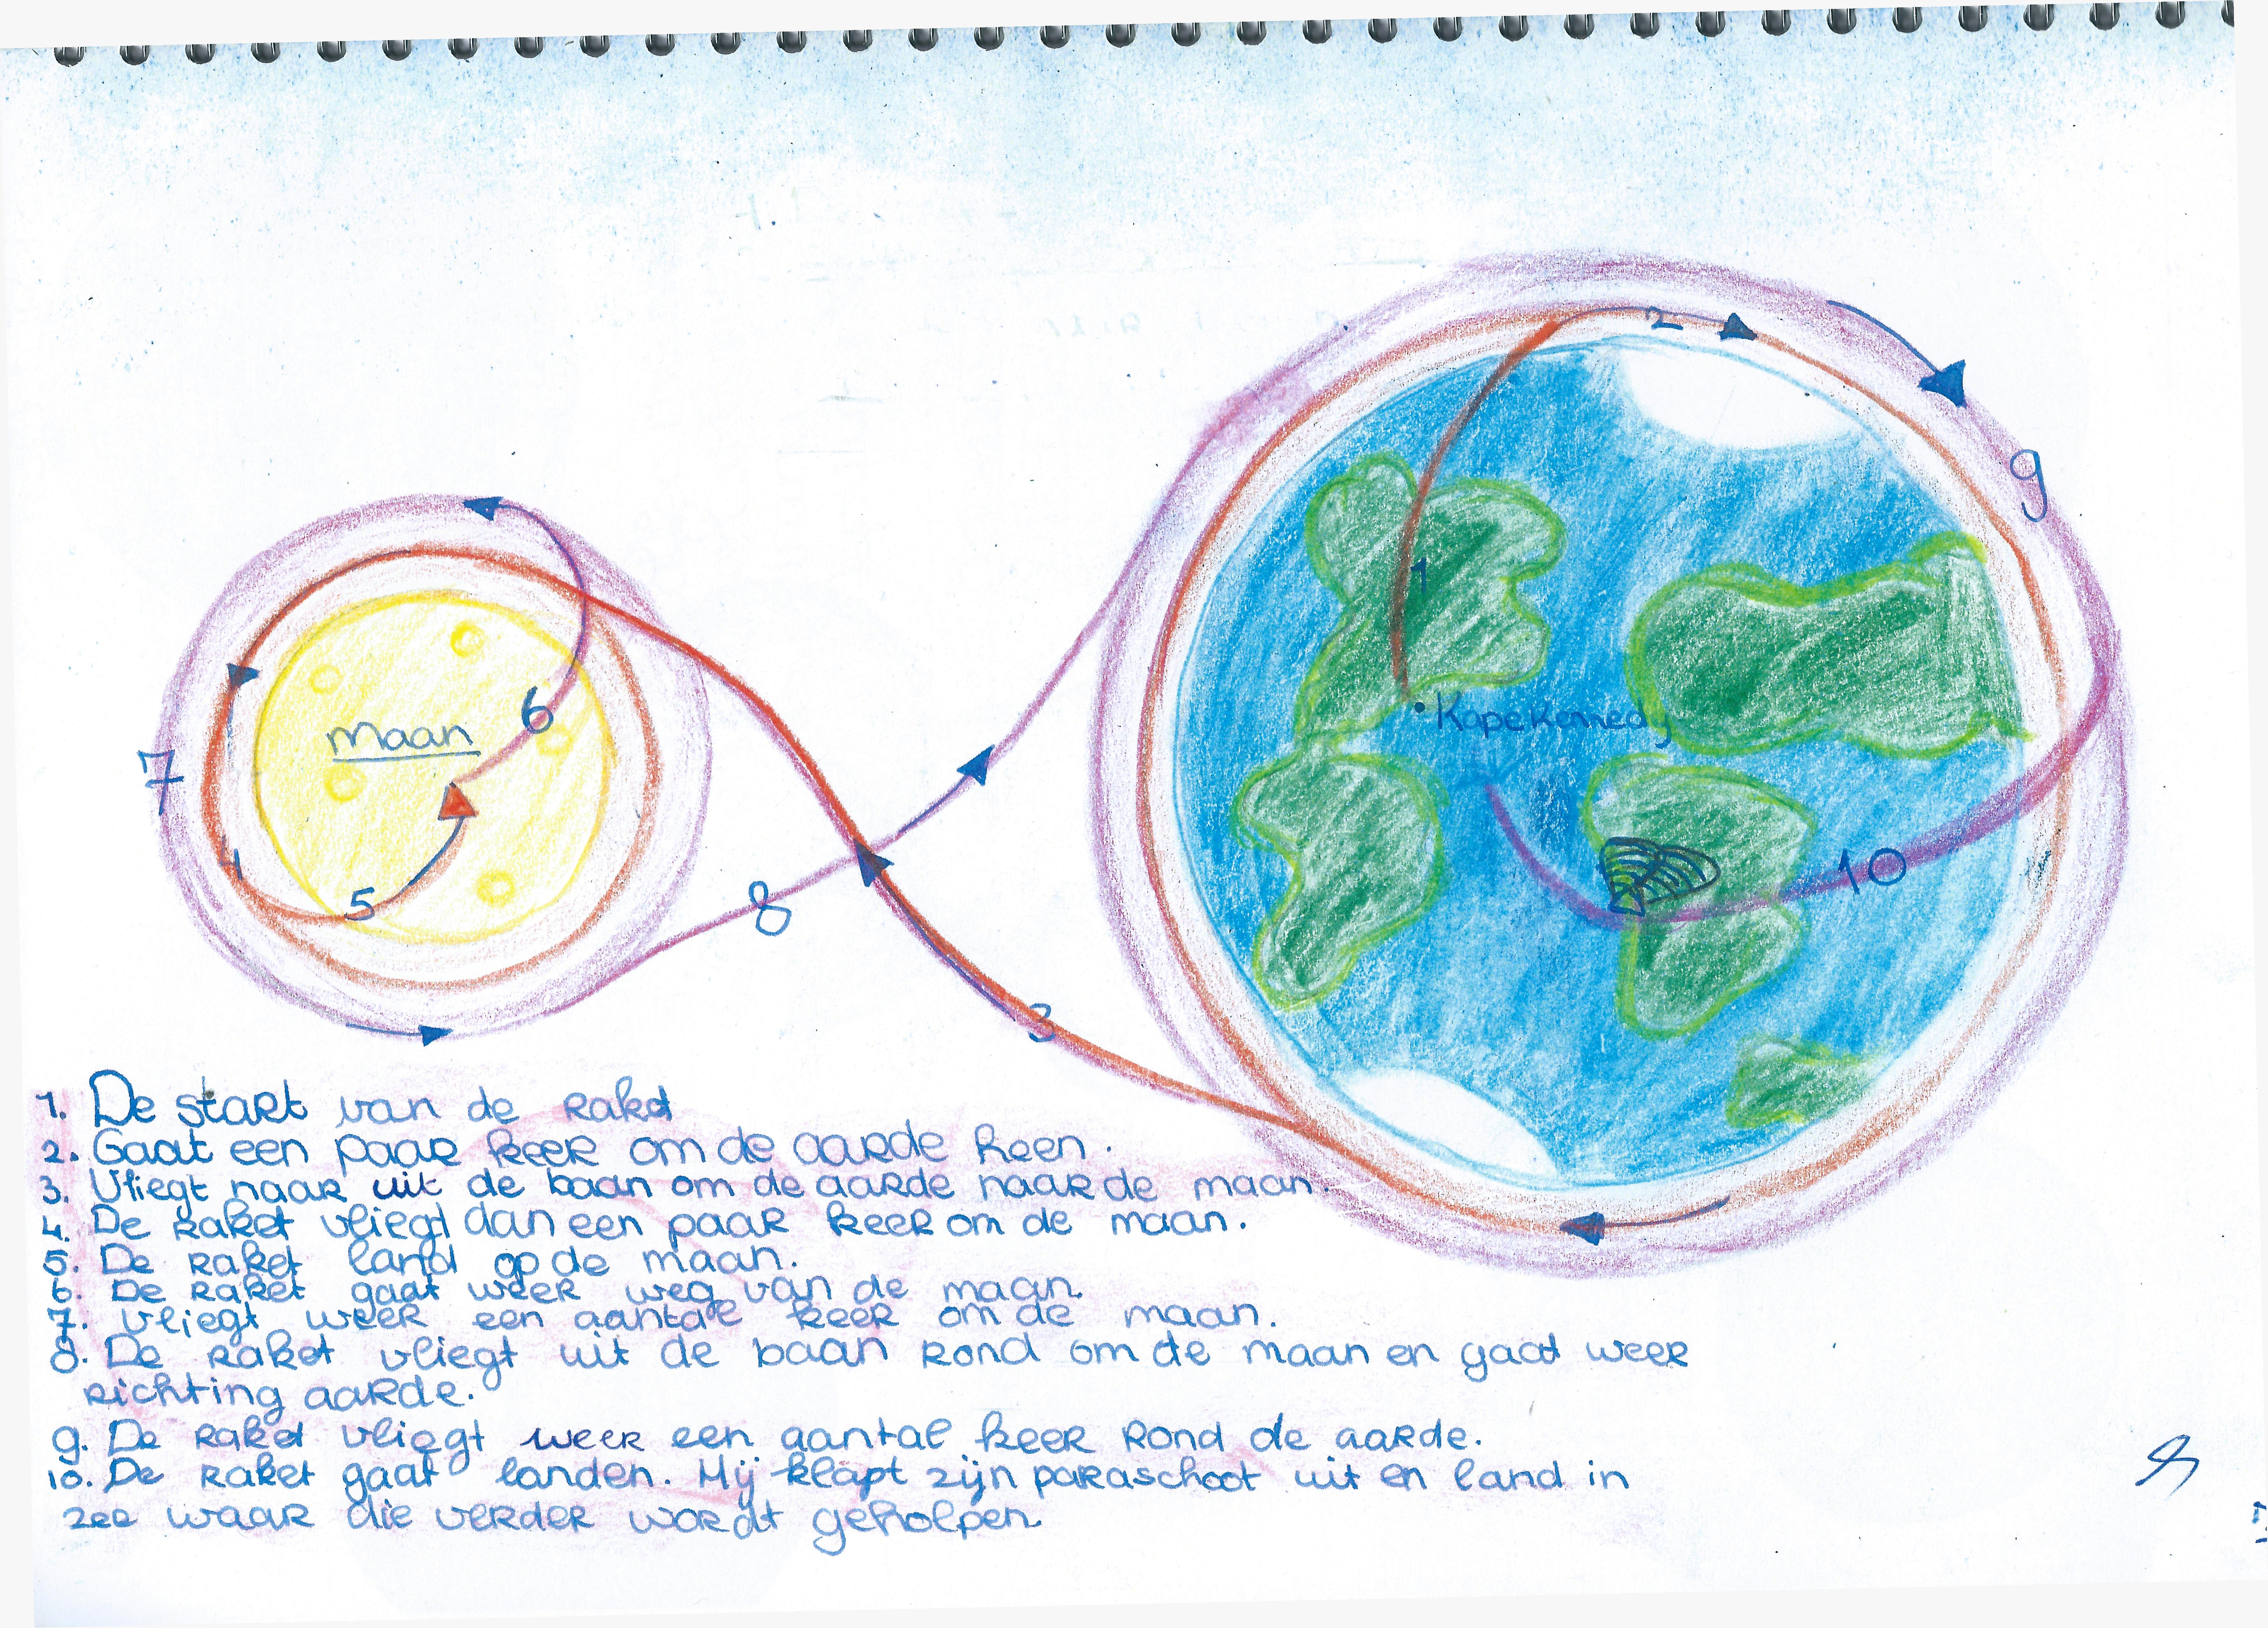 2
9
1
Kape Kenedy
6
maan
7
4
5
10
8
3
1. De start van de raket
2. Gaat een paar keer om de aarde heen.
3. Vliegt naar uit de baan om de aarde naar de maan.
4. De raket vliegt dan een paar keer om de maan.
5. De raket land op de maan.
6. De raket gaat weer weg van de maan.
7. Vliegt weer een aantal keer om de maan.
8. De raket vliegt uit de baan rond om de maan en gaat weer
richting aarde.
9. De raket vliegt weer een aantal keer rond de aarde.
10. De raket gaat landen. Hij klapt zijn paraschoot uit en land in
zee waar die verder wordt geholpen